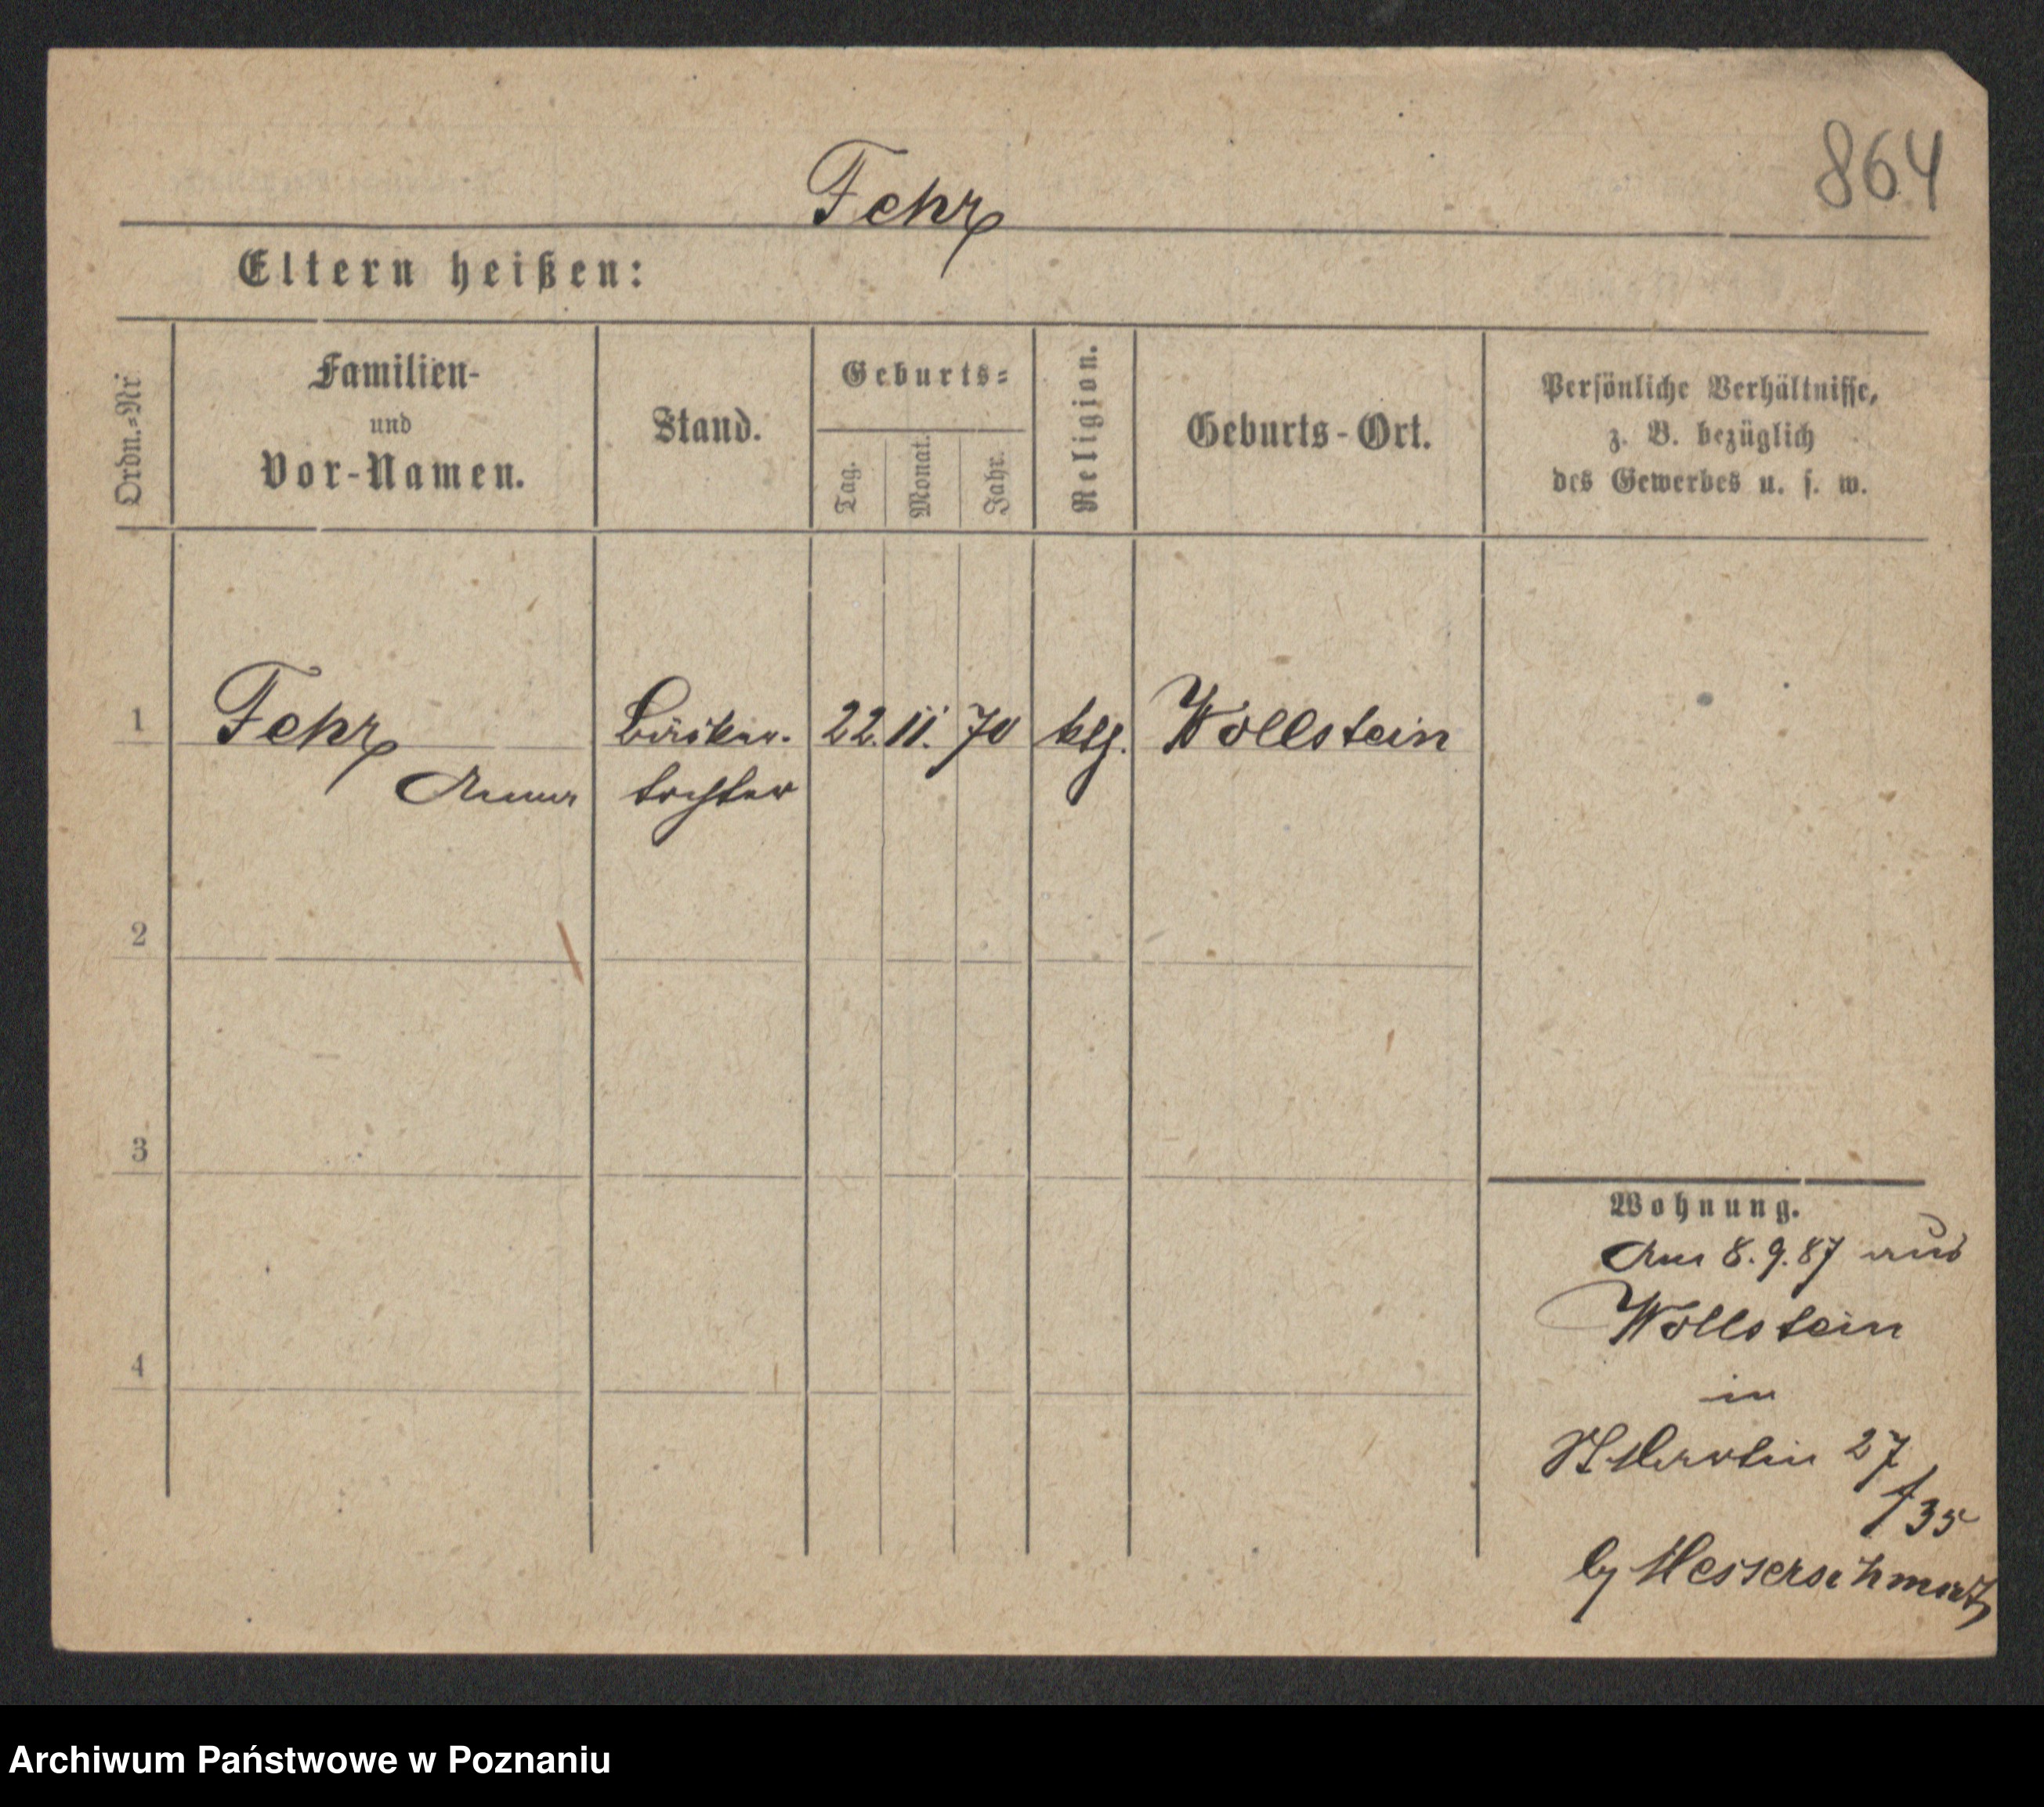 864
Fehr
Eltern heißen:
Ordn.-Nr
Familien-
und
Vor-Namen.
Stand.
Geburts-
Tag.
Monat.
Jahr.
Religion.
Geburts-Ort.
Persönliche Verhältnisse,
z. B. bezüglich
des Gewerbes u. s. w.
1 Fehr 22. 11. 70 ktl. Wollstein
Anna tochter
2
3
4
Wohnung.
Am 8.9.87 aus
Wollstein
in
St Martin 27
/35
by Messerschmidt
Archiwum Państwowe w Poznaniu